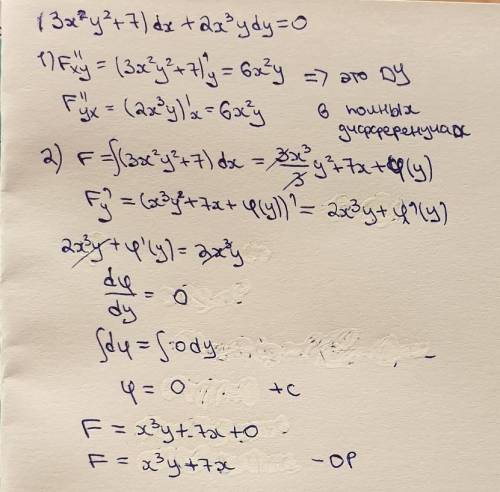 (3x²y²+7)dx + 2x³ydy=0
1) F''xy = (3x²y²+7)'y = 6x²y => это ДУ
F''yx = (2x³y)'x = 6x²y в полных дифференциалах
2) F = ∫(3x²y²+7)dx = 3x³/3 y²+7x+φ(y)
F'y = (x³y²+7x+φ(y))' = 2x³y+φ'(y)
2x³y+φ'(y) = 2x³y
dφ/dy = 0
∫dφ = ∫0dy
φ = 0 +c
F = x³y+7x+0
F = x³y+7x - ОР